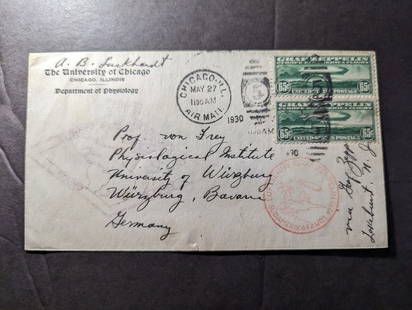 A. B. Luckhardt
The University of Chicago
CHICAGO, ILLINOIS
Department of Physiology
CHICAGO, ILL.
MAY 27
11:30 AM
AIR MAIL
1930
GRAF ZEPPELIN
65c
UNITED STATES POSTAGE
65c
GRAF ZEPPELIN
65c
UNITED STATES POSTAGE
65c
Prof. von Frey
Physiological Institute
University of Würzburg
Würzburg, Bavaria
Germany
via
Lakehurst N. J.